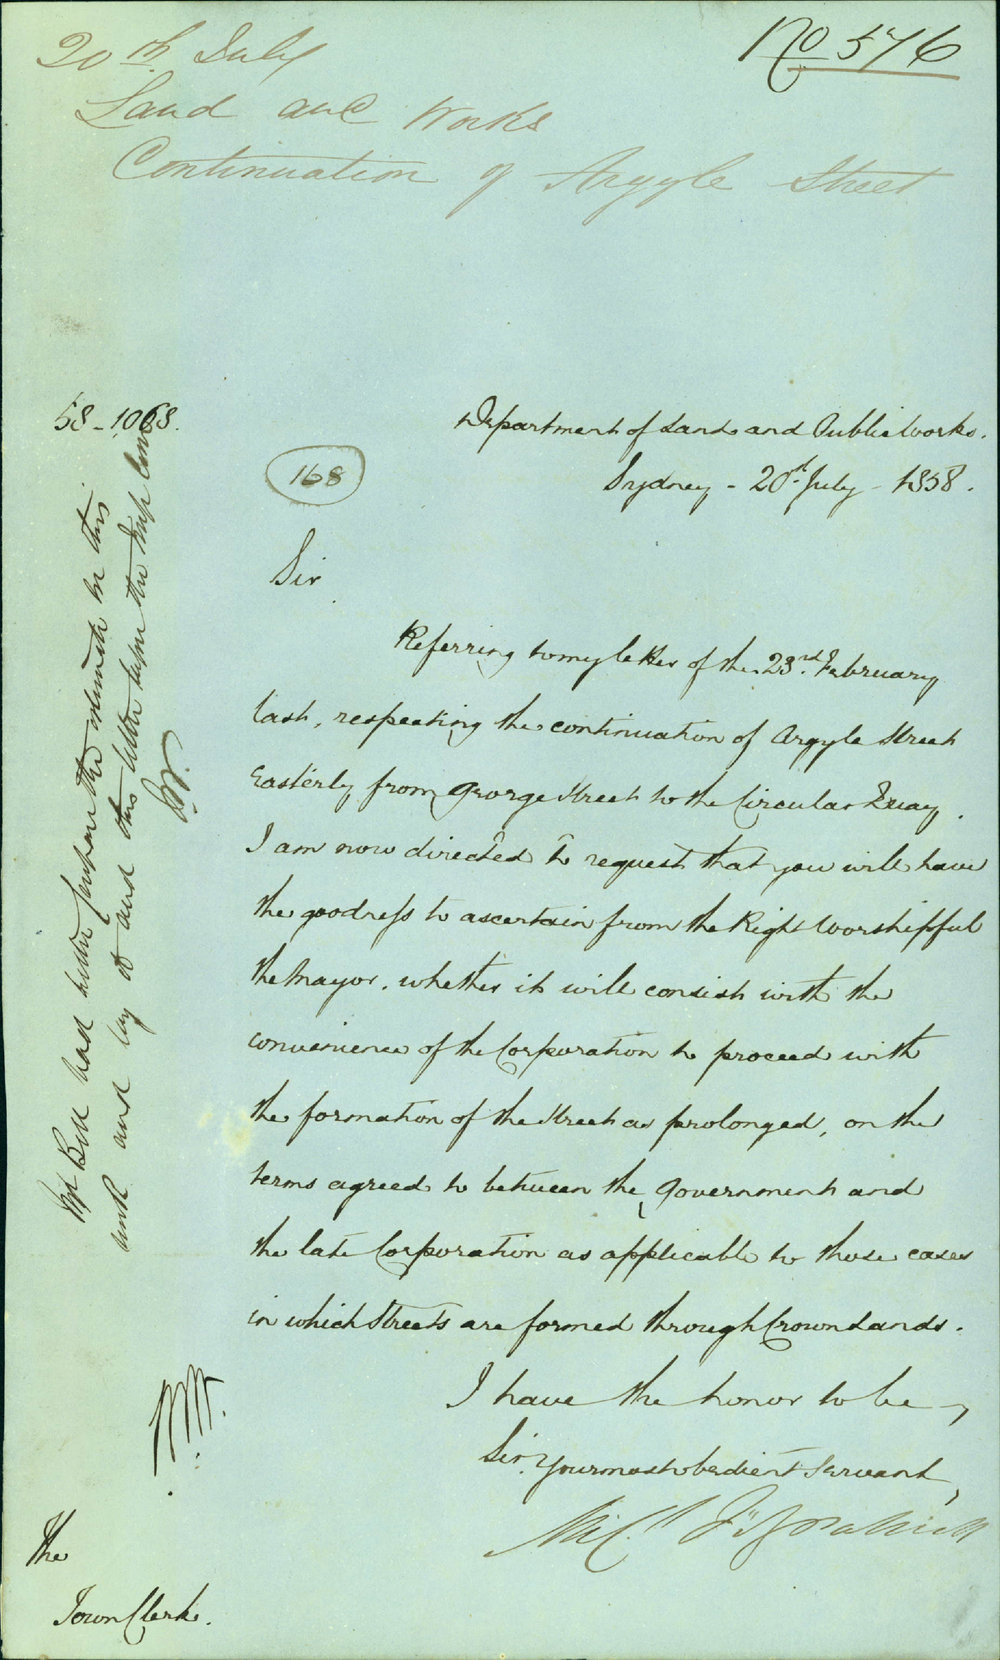 20th July
Land and Works
Continuation of Argyle Street
No 576
58-1068.
168
Department of Lands and Public Works.
Sydney - 20th July - 1858.
Sir
Referring to my letter of the 23rd February
last, respecting the continuation of Argyle Street
Easterly from George Street to the Circular Quay.
I am now directed to request that you will have
the goodness to ascertain from the Right Worshipful
the Mayor, whether it will consist with the
convenience of the Corporation to proceed with
the formation of the Street as prolonged, on the
terms agreed to between the Government and
the late Corporation as applicable to those cases
in which Streets are formed through Crown Lands.
I have the honor to be,
Sir, Your most obedient Servant,
Micl Fitzpatrick
The
Town Clerk.
Mr Bell had better the minute in this
and lay it and this letter before the Imp Com